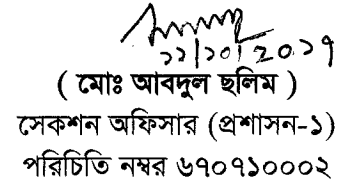 ২২/১০/২০১৭
( মোঃ আবদুল ছলিম )
সেকশন অফিসার (প্রশাসন-১)
পরিচিতি নম্বর ৬৭০৭১০০০২